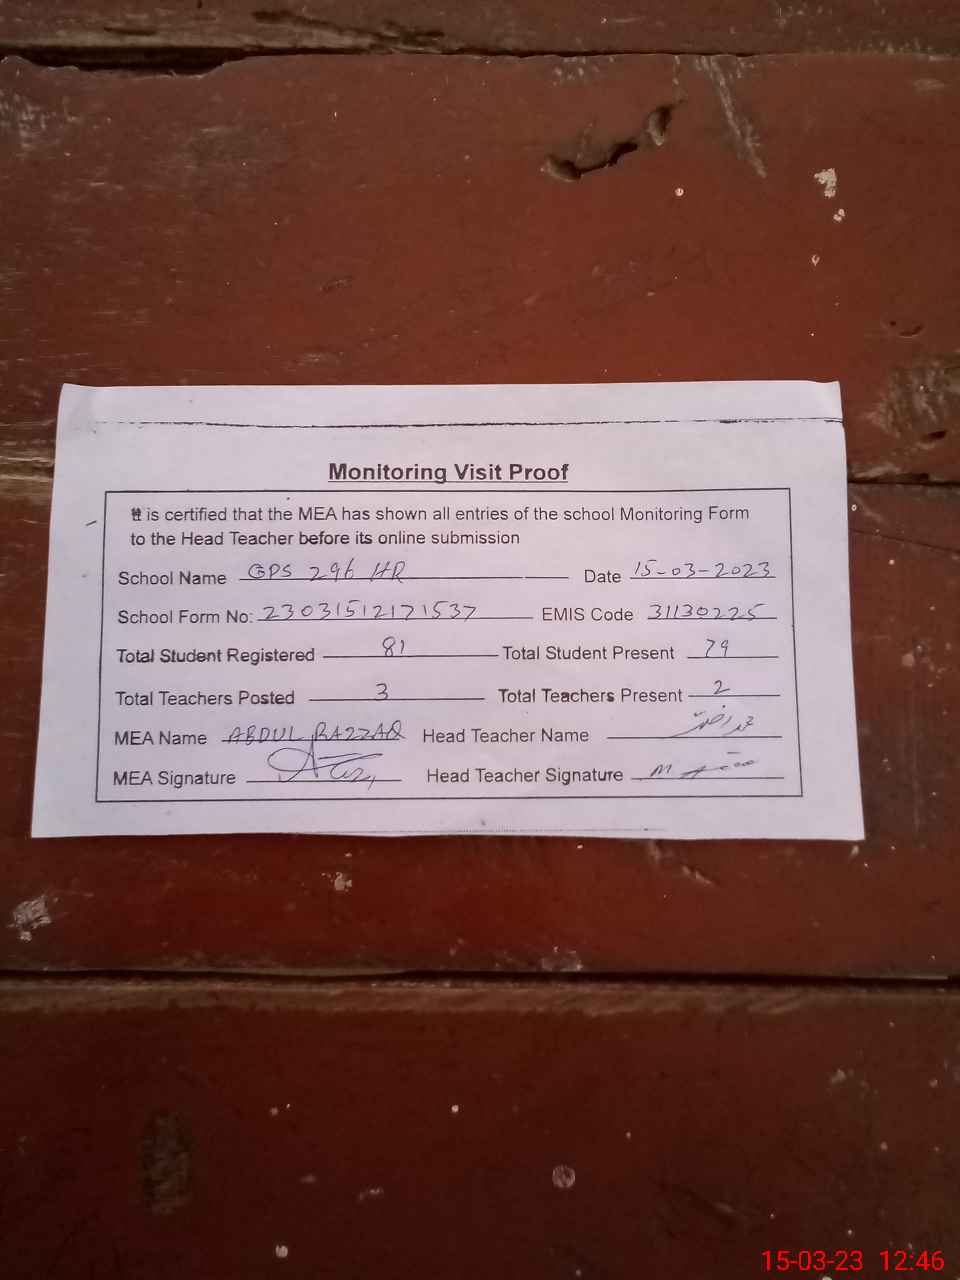 Monitoring Visit Proof
It is certified that the MEA has shown all entries of the school Monitoring Form
to the Head Teacher before its online submission
School Name GPS 296 HR Date 15-03-2023
School Form No: 23031512171537 EMIS Code 31130225
Total Student Registered 81 Total Student Present 79
Total Teachers Posted 3 Total Teachers Present 2
MEA Name ABDUL RAZZAQ Head Teacher Name
MEA Signature Head Teacher Signature
15-03-23 12:46